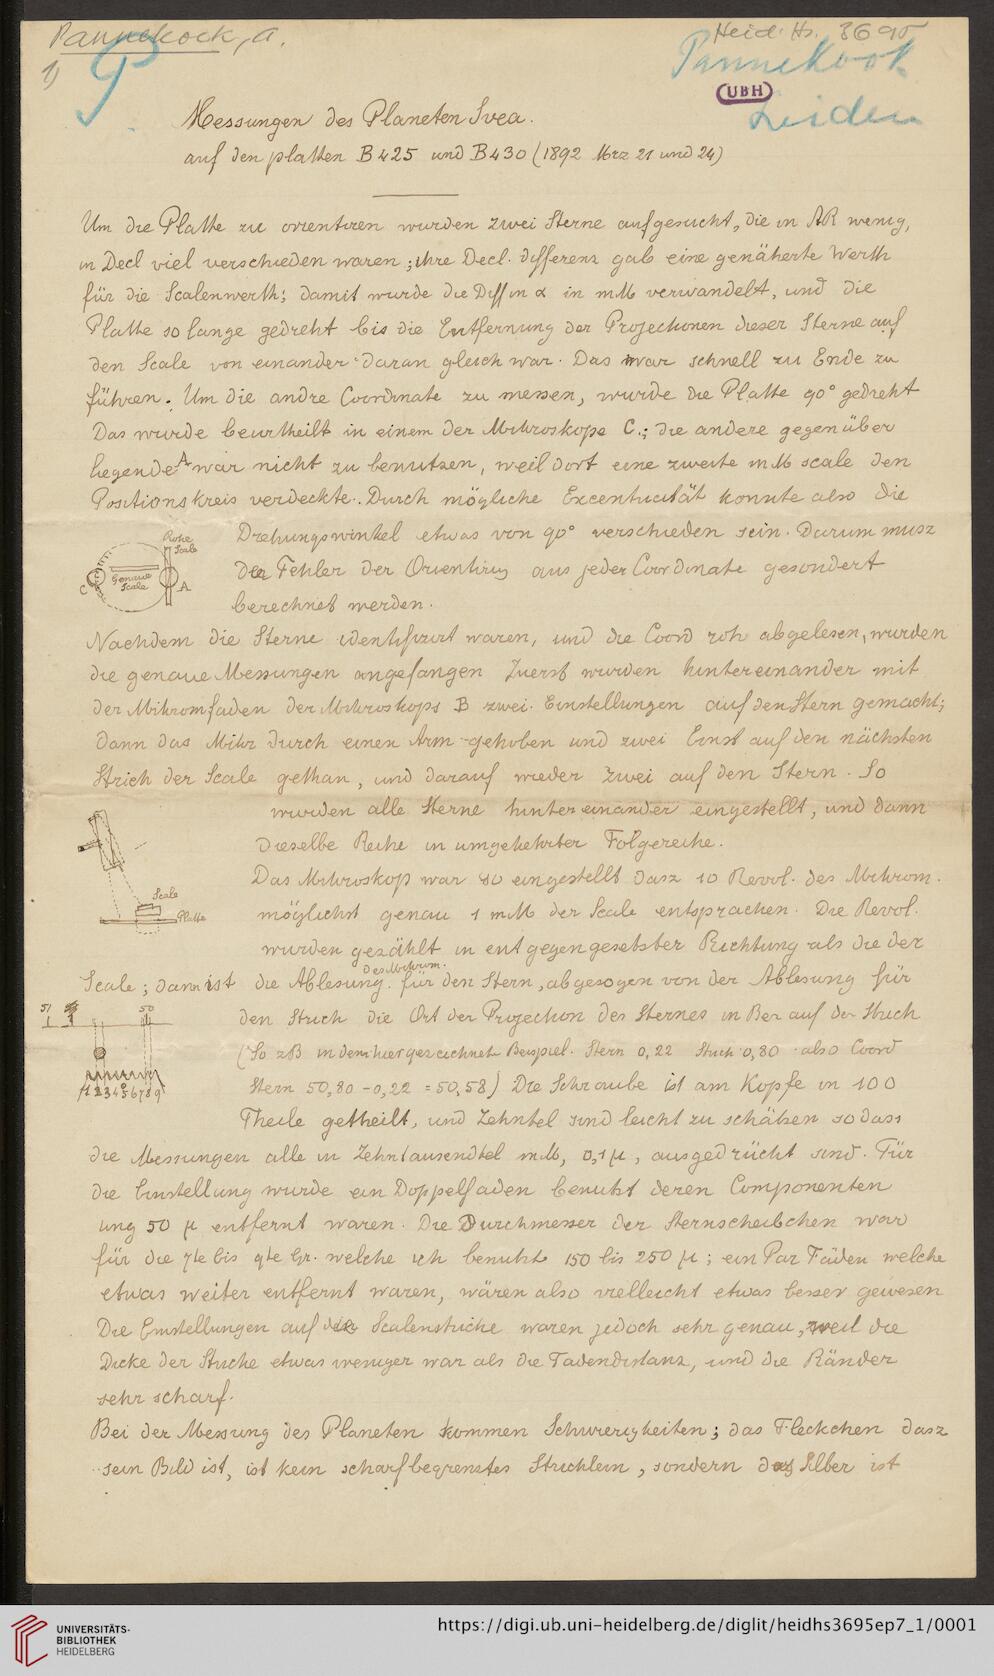 Pannekoek, A.
Heid. Hs. 3695
1)
P
Pannekoek
UBH
Leiden
Messungen des Planeten Svea.
auf den platten B425 und B430 (1892 Mrz 21 und 24)
Um die Platte zu orientiren wurden zwei Sterne aufgesucht, die in AR wenig,
in Decl viel verschieden waren; ihre Decl. differenz gab eine genäherte Werth
für die Scalenwerth; damit wurde die Diff in α in mM verwandelt, und die
Platte so lange gedreht bis die Entfernung der Projectionen dieser Sterne auf
den Scale von einander daran gleich war. Das war schnell zu Ende zu
führen. Um die andre Coordinate zu messen, wurde die Platte 90° gedreht
Das wurde beurtheilt in einem der Mikroskope C.; die andere gegenüber
liegende A war nicht zu benutzen, weil dort eine zweite mM scale den
Positionskreis verdeckte. Durch mögliche Excentricität konnte also die
Drehungswinkel etwas von 90° verschieden sein. Darum musz
der Fehler der Orientirung aus jeder Coordinate gesondert
berechnet werden.
Rohe
Scale
Genaue
Scale
C
A
Nachdem die Sterne identifizirt waren, und die Coord roh abgelesen, wurden
die genaue Messungen angefangen Zuerst wurden hintereinander mit
der Mikromfaden der Mikroskops B zwei Einstellungen auf den Stern gemacht;
dann das Mikr durch einen Arm gehoben und zwei Einst auf den nächsten
Strich der Scale gethan, und darauf wieder zwei auf den Stern. So
wurden alle Sterne hintereinander eingestellt, und dann
dieselbe Reihe in umgekehrter Folgereihe.
Das Mikroskop war so eingestellt dasz 10 Revol. des Mikrom.
möglichst genau 1 mM der Scale entsprachen. Die Revol.
wurden gezählt in entgegengesetzter Richtung als die der
Scale
Platte
Scale; dann ist die Ablesung des Mikrom. für den Stern, abgezogen von der Ablesung für
den Strich die Ort der Projection des Sternes in Bez auf der Strich
(So zB in dem hier gezeichnete Beispiel. Stern 0,22 Strich 0,80 also Coord
Stern 50,80 - 0,22 = 50,58) Die Schraube ist am Kopfe in 100
Theile getheilt, und Zehntel sind leicht zu schätzen so dass
51
50
1 2 3 4 5 6 7 8 9
die Messungen alle in Zehntausendtel mM, 0,1 µ, ausgedrückt sind. Für
die Einstellung wurde ein Doppelfaden benutzt deren Componenten
ung 50 µ entfernt waren. Die Durchmesser der Sternscheibchen war
für die 7te bis 9te Gr. welche ich benutzte 150 bis 250 µ; ein Par Fäden welche
etwas weiter entfernt waren, wären also vielleicht etwas besser gewesen
Die Einstellungen auf die Scalenstriche waren jedoch sehr genau, weil die
Dicke der Striche etwas weniger war als die Fadendistanz, und die Ränder
sehr scharf.
Bei der Messung des Planeten kommen Schwierigkeiten; das Fleckchen dasz
sein Bild ist, ist kein scharf begrenztes Strichlein, sondern das Silber ist
UNIVERSITÄTS-
BIBLIOTHEK
HEIDELBERG
https://digi.ub.uni-heidelberg.de/diglit/heidhs3695ep7_1/0001